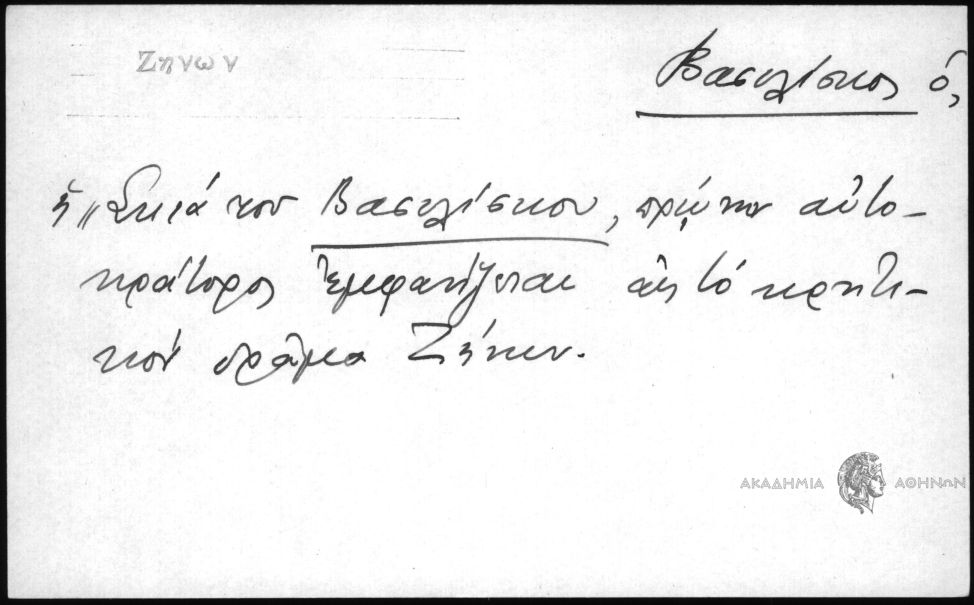 Ζηνων
Βασιλίσκος ὁ,
ἡ „Σκιά του Βασιλίσκου, πρώην αὐτο-
κράτορος ἐμφανίζεται εἰς τό κρητι-
κόν δρᾶμα Ζήνων.
ΑΚΑΔΗΜΙΑ ΑΘΗΝΩΝ